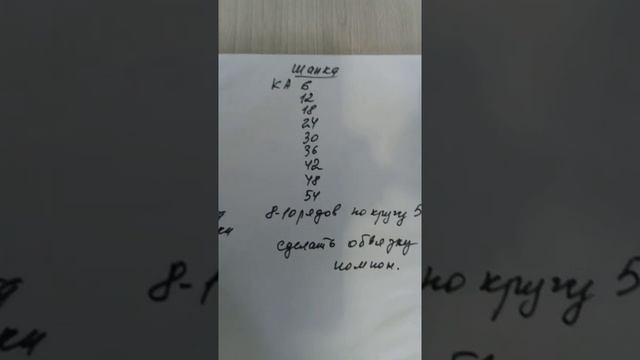 Шапка
КА 6
12
18
24
30
36
42
48
54
8-10 рядов по кругу 5
сделать обвязку
помпон.